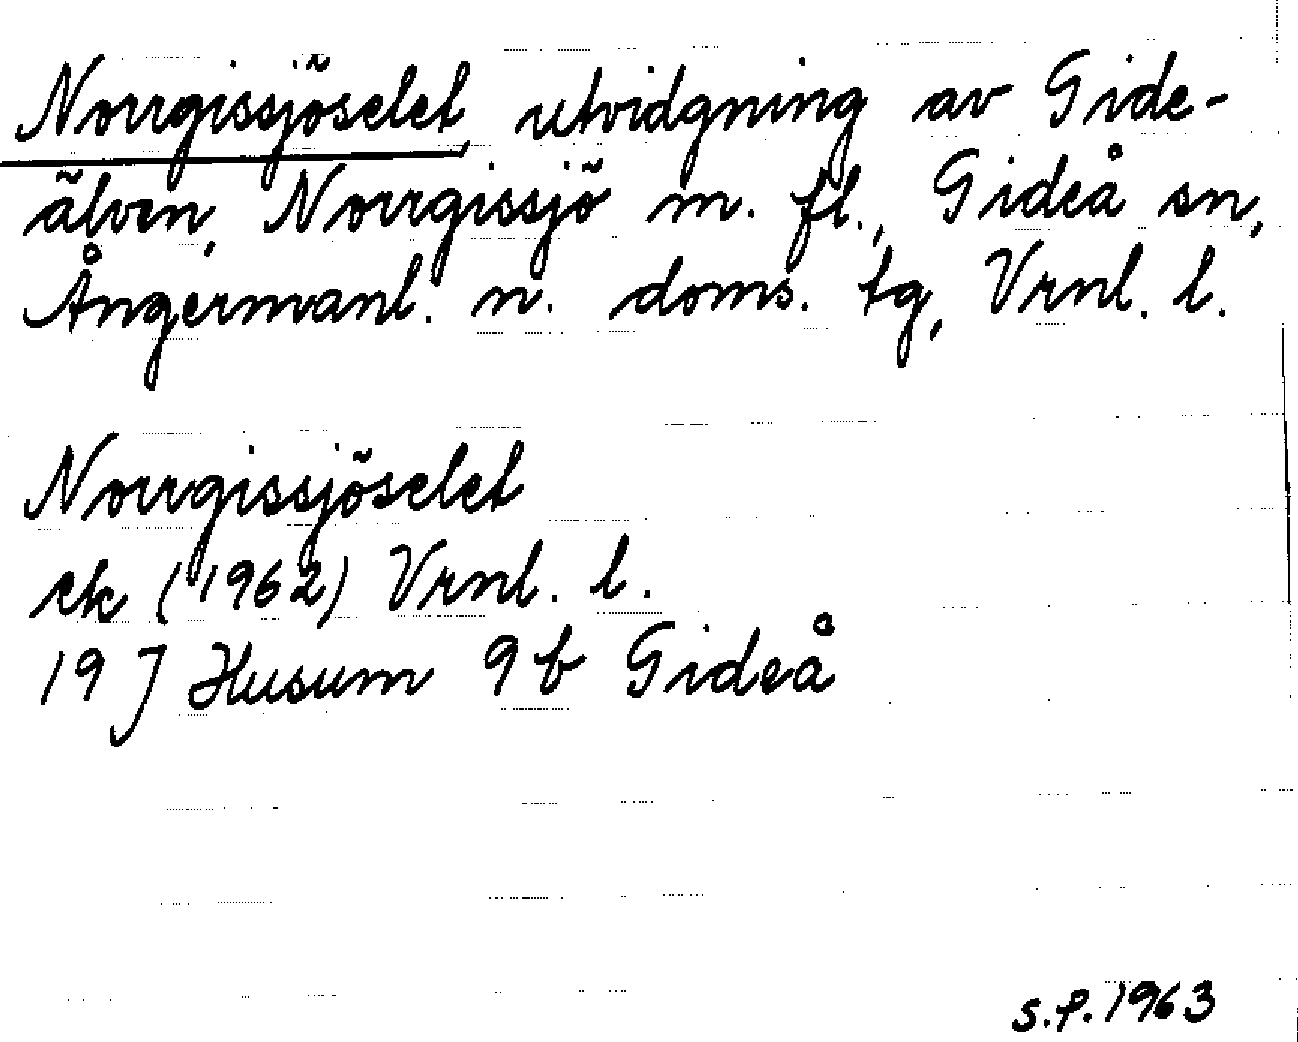 Norrgissjöselet, utvidgning av Gide-
älven, Norrgissjö m. fl., Gideå sn,
Ångermanl. n. doms. tg, Vrnl. l.
Norrgissjöselet
ek (1962) Vrnl. l.
19 J Husum 9b Gideå
s.f. 1963